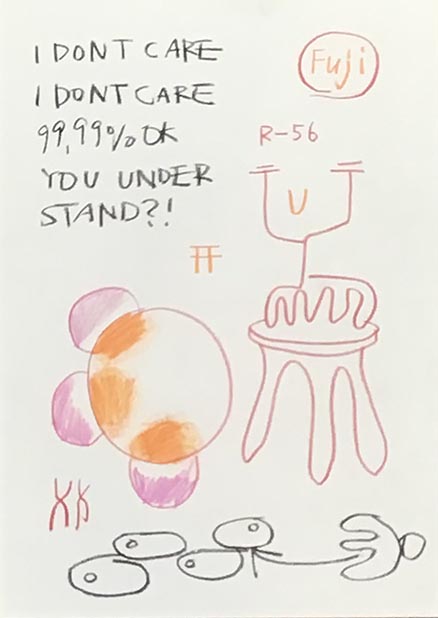 I DONT CARE
I DONT CARE
99,99% OK
YOU UNDER
STAND?!
Fuji
R-56
U